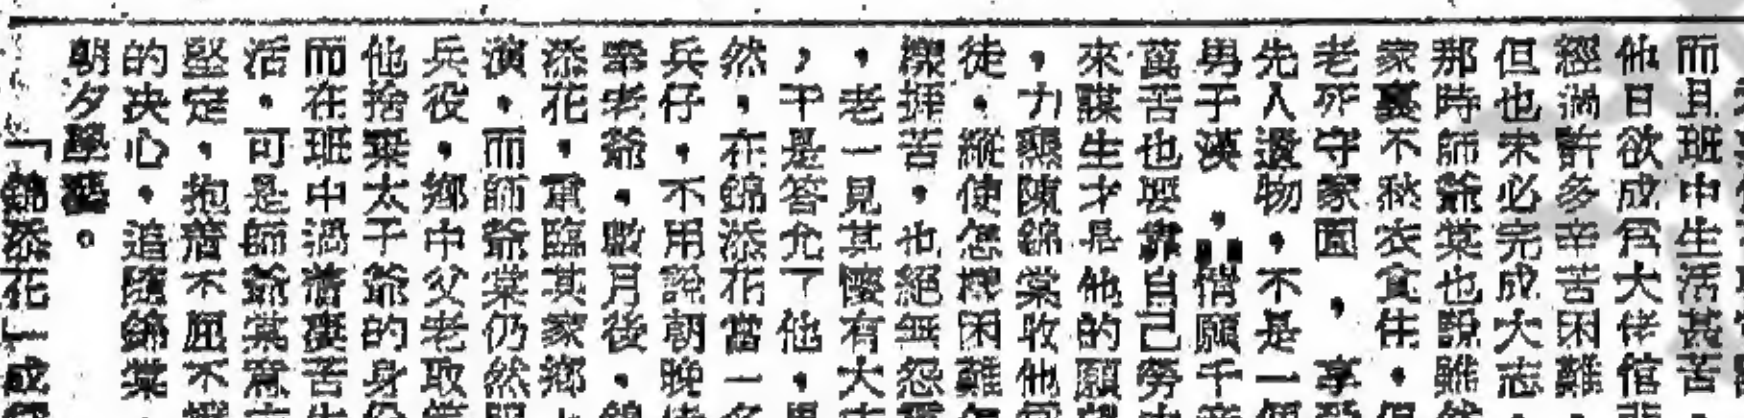 而且班中生活甚苦
他日欲成爲大佬倌
經過許多辛苦困難
但也未必完成大志
那時師爺棠也說雖
家裏不愁衣食住。
老死守家園，享
先人遺物，不是一
男子漢，情願千
萬苦也要靠自己勞
來謀生才是他的願
，力懇陳錦棠收他
徒，縱使怎樣困難
樂捱苦，也絕無怨
，老一見其懷有大
，于是答允了他，
然，在錦添花當一
兵仔，不用說朝晚
老爺，數月後，
添花，重臨其家鄉
演，而師爺棠仍然
兵役，鄉中父老取
他捨棄太子爺的身
而在班中過着凄苦
活，可是師爺棠意
堅定，抱着不屈不
的决心，追隨錦棠
朝夕學藝。
「錦添花」成